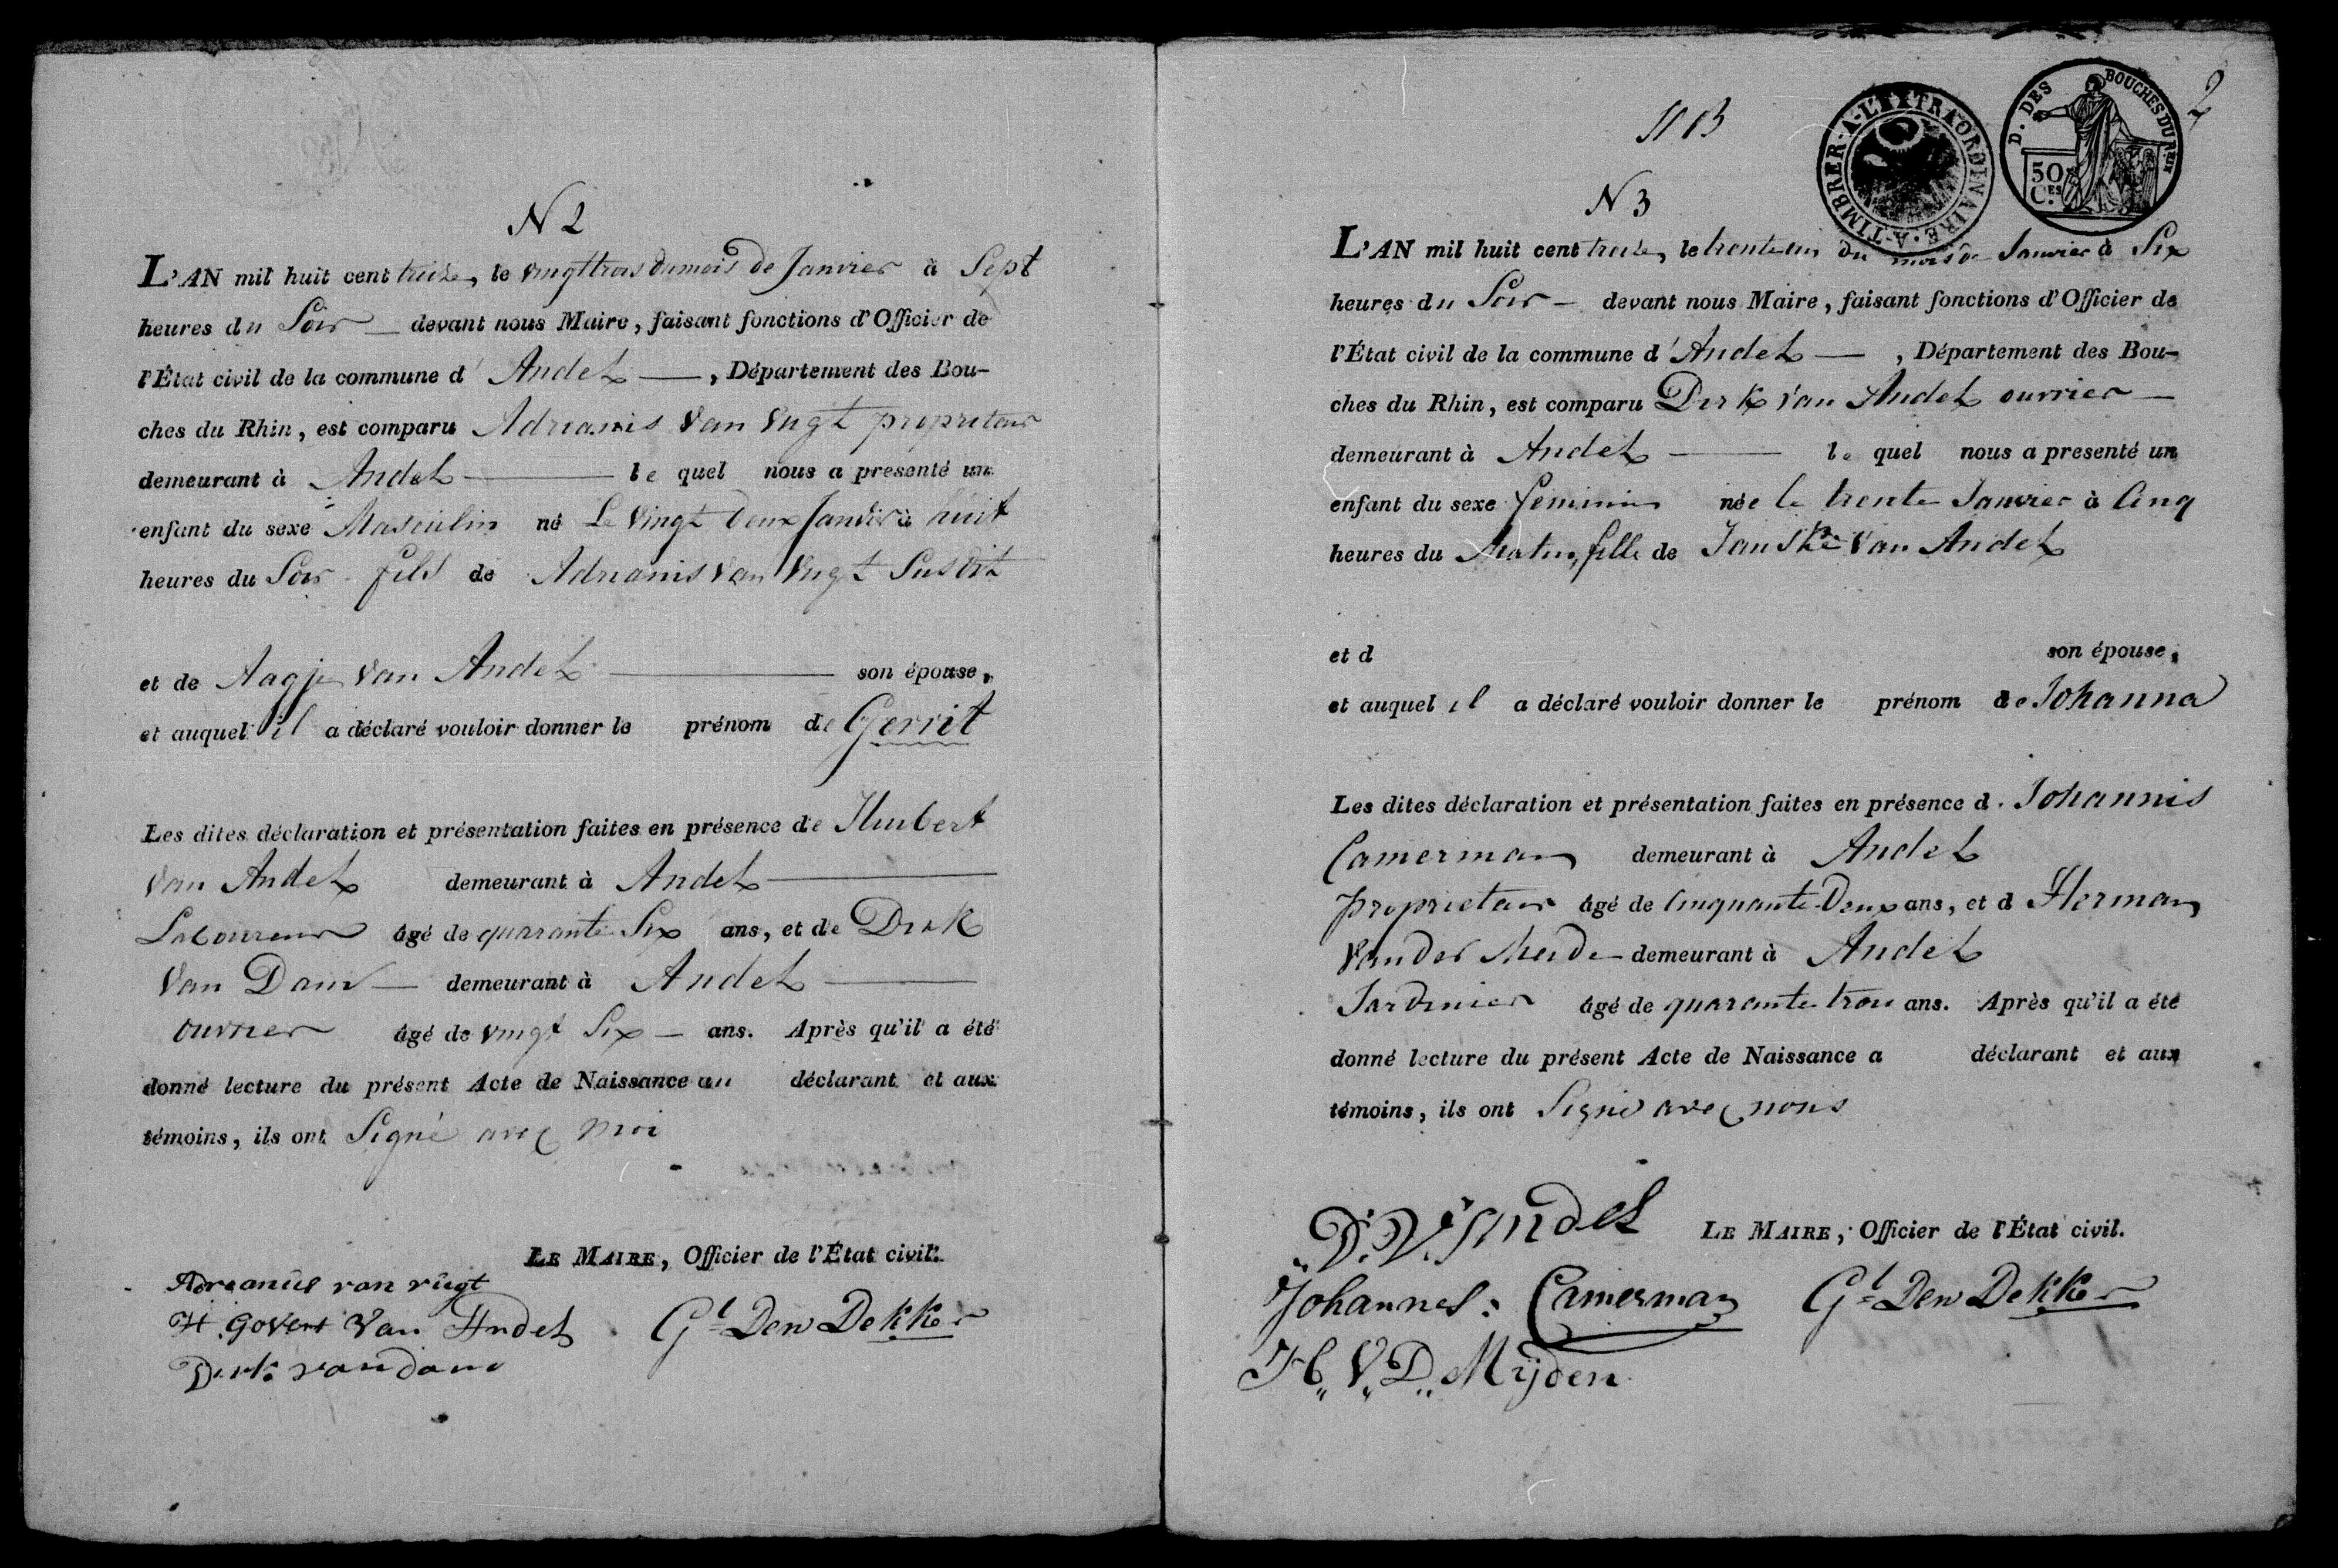 N 2
L'AN mil huit cent treize, le vingt trois du mois de Janvier à Sept
heures du Soir devant nous Maire, faisant fonctions d'Officier de
l'État civil de la commune d' Andel, Département des Bou-
ches du Rhin, est comparu Adrianis Van Vugt proprietair
demeurant à Andel le quel nous a presenté un
enfant du sexe Masculin né Le Vingt deux Janvier à huit
heures du Soir fils de Adrianis Van Vugt Susdit
et de Aagje Van Andel son épouse,
et auquel il a déclaré vouloir donner le prénom de Gerrit
Les dites déclaration et présentation faites en présence de Huibert
Van Andel demeurant à Andel
Laboureur âgé de quarante Six ans, et de Dirk
Van Dam demeurant à Andel
ouvrier âgé de vingt Six ans. Après qu'il a été
donné lecture du présent Acte de Naissance au déclarant et aux
témoins, ils ont Signé avec moi
LE MAIRE, Officier de l'État civil.
Adreanus van vugt
H. Govert Van Andel
Gt Den Dekker
Dirk van dam
2
N 3
A-TIMBRER-A-L'EXTRAORDINAIRE
D. DES BOUCHES DU RHIN
50 CES
L'AN mil huit cent treize, le trente un du mois de Janvier à Six
heures du Soir devant nous Maire, faisant fonctions d'Officier de
l'État civil de la commune d' Andel, Département des Bou-
ches du Rhin, est comparu Dirk Van Andel ouvrier
demeurant à Andel le quel nous a presenté un
enfant du sexe feminin née le trente Janvier à Cinq
heures du Matin, fille de Janske Van Andel
et d son épouse,
et auquel il a déclaré vouloir donner le prénom de Johanna
Les dites déclaration et présentation faites en présence d. Johannis
Camerman demeurant à Andel
proprietair âgé de Cinquante Deux ans, et d Herman
Vander Meide demeurant à Andel
Jardinier âgé de quarante trois ans. Après qu'il a été
donné lecture du présent Acte de Naissance a déclarant et aux
témoins, ils ont Signé avec nous
D. V. Andel
LE MAIRE, Officier de l'État civil.
Johannes: Camerman
Gt Den Dekker
H. V. D. Mijden